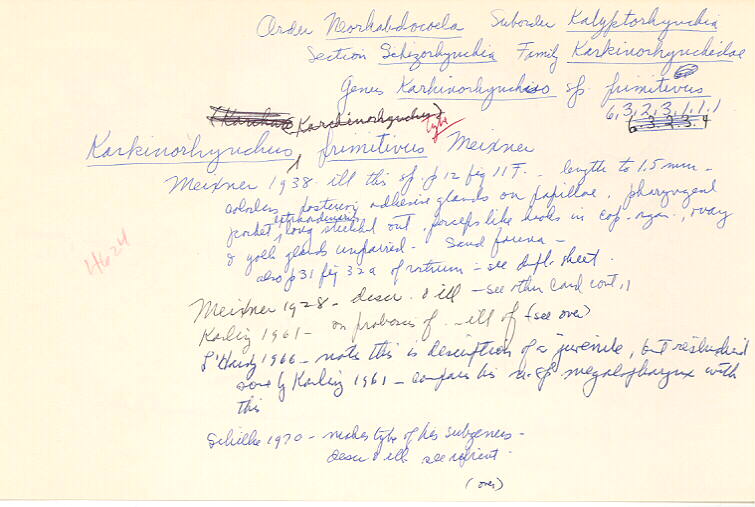 Order Neorhabdocoela Suborder Kalyptorhynchia
Section Schizorhynchia Family Karkinorhynchidae
Genus Karkinorhynchus sp. primitivus
6,3,2,3,1.1.1
6.3.2.3.4
(Karkinorhynchus) type
Karkinorhynchus primitivus Meixner
Meixner 1938 ill this sp. p 12 fig 11 F. - length to 1.5 mm -
colorless, posterior adhesive glands on papillae, pharyngeal
pocket extraordinarily long stretched out, forceps like hooks in cop. organ, ovary
& yolk glands unpaired - Sand fauna -
also p 31 fig 32 a of rostrum - see dupl. sheet.
4624
Meixner 1928 - descr. & ill - see other card cont,,
Karling 1961 - on proboscis of - ill of (see over)
L'Hardy 1966 - note this is description of a juvenile, but restudied
some by Karling 1961 - compares his n. sp. megalopharynx with
this
Schilke 1970 - makes type of his subgenus -
descr & ill. see reprint -
(over)